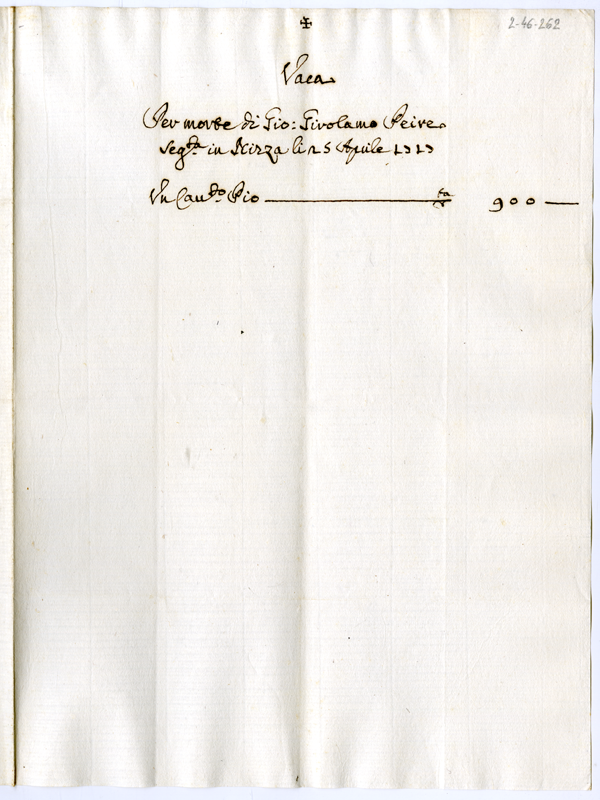 ✠
2-46-262
Vaca
Per morte di Gio: Girolamo Peire
seg.ta in Nizza li 25 Aprile 1717
Un Cau.to Pio — 900 —